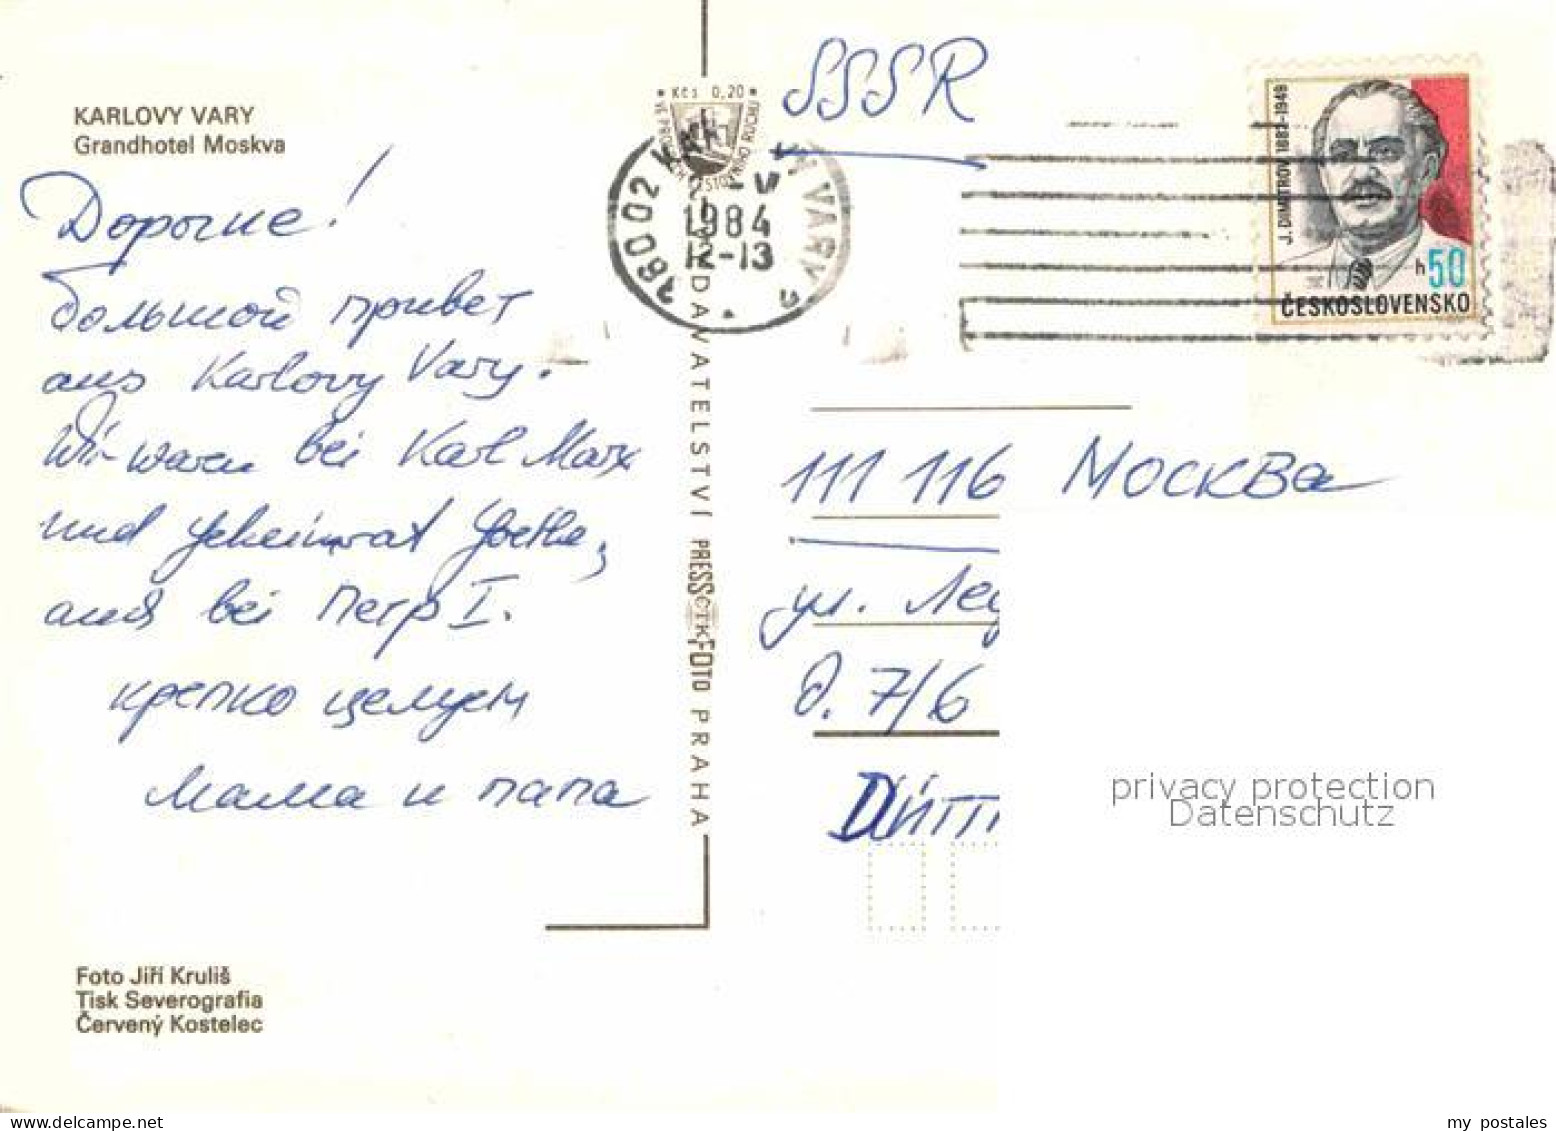 KARLOVY VARY
Grandhotel Moskva
Дорогие!
большой привет
aus Karlovy Vary.
Wir waren bei Karl Marx
und Geheimrat Goethe,
auch bei Петр I.
крепко целуем
мама и папа
Foto Jiří Kruliš
Tisk Severografia
Červený Kostelec
Kčs 0,20
VYDAVATELSTVÍ PRESSFOTO PRAHA
ČTK
360 02 KARLOVY VARY 2
-V
1984
12-13
SSSR
J. DIMITROV 1882-1949
h 50
ČESKOSLOVENSKO
111 116 Москва
ул. Лед
д. 7/6
Дитт
privacy protection
Datenschutz
my postales